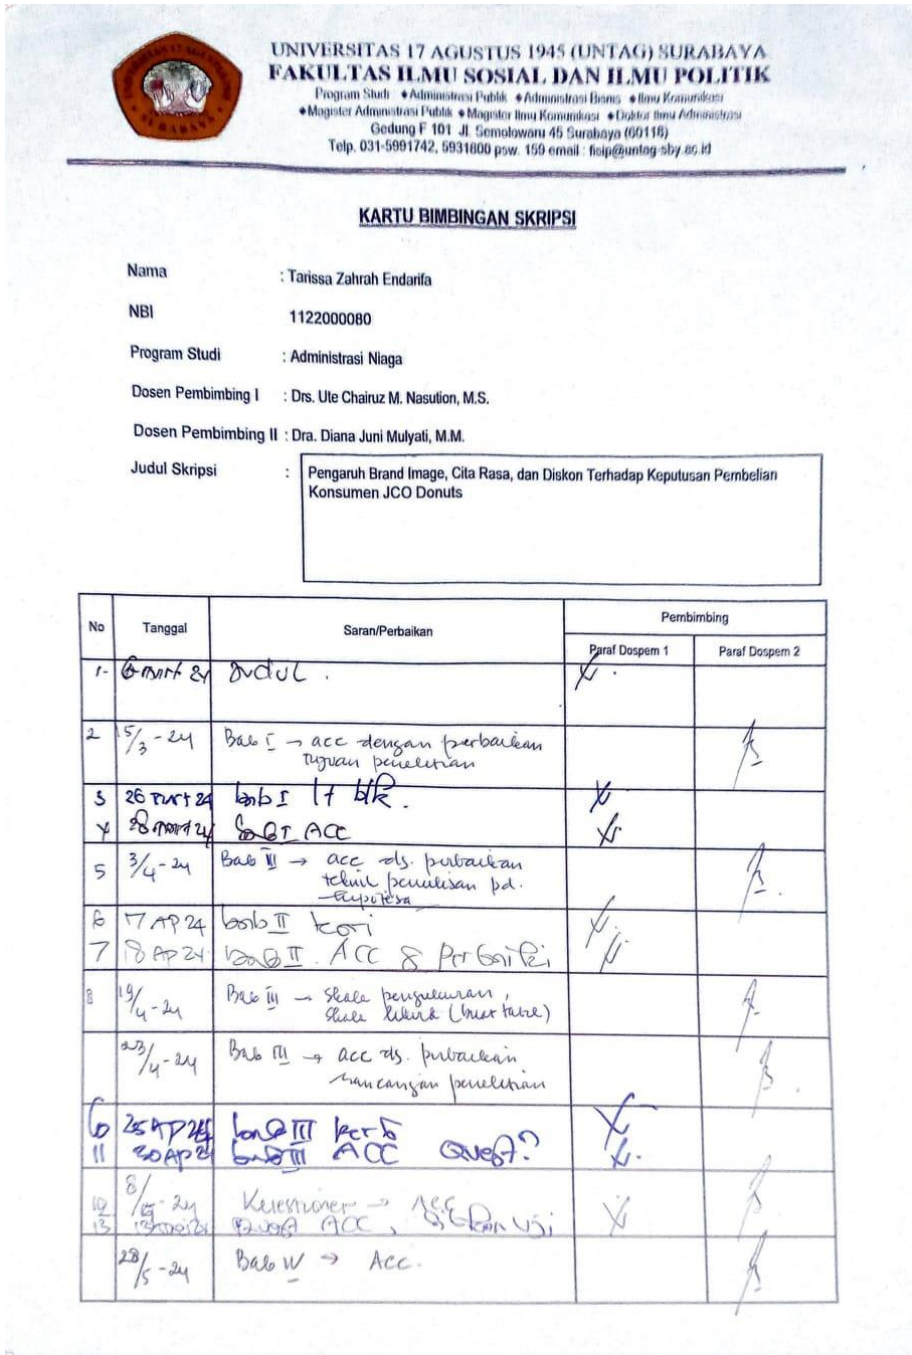 UNIVERSITAS 17 AGUSTUS 1945 (UNTAG) SURABAYA
FAKULTAS ILMU SOSIAL DAN ILMU POLITIK
Program Studi : ♦Administrasi Publik ♦Administrasi Bisnis ♦Ilmu Komunikasi
♦Magister Administrasi Publik ♦Magister Ilmu Komunikasi ♦Doktor Ilmu Administrasi
Gedung F 101 Jl. Semolowaru 45 Surabaya (60118)
Telp. 031-5991742, 5931800 psw. 159 email : fisip@untag-sby.ac.id
KARTU BIMBINGAN SKRIPSI
Nama : Tarissa Zahrah Endarifa
NBI 1122000080
Program Studi : Administrasi Niaga
Dosen Pembimbing I : Drs. Ute Chairuz M. Nasution, M.S.
Dosen Pembimbing II : Dra. Diana Juni Mulyati, M.M.
Judul Skripsi : Pengaruh Brand Image, Cita Rasa, dan Diskon Terhadap Keputusan Pembelian
Konsumen JCO Donuts
No Tanggal Saran/Perbaikan Pembimbing
Paraf Dospem 1 Paraf Dospem 2
1- 24 Judul .
2 15/3 - 24 Bab I → acc dengan perbaikan
tujuan penelitian
3 26 24 bab I
4 28 24 bab I ACC
5 3/4 - 24 Bab → acc dg. perbaikan
teknik penulisan pd.
hipotesa
6 17 AP 24 bab II
7 18 AP 24 bab II ACC
8 19/4 - 24 Bab III → skala pengukuran,
skala likert
23/4 - 24 Bab III → acc dg. perbaikan
rancangan penelitian
25 AP 24 bab III
11 30 AP 24 bab III ACC Quest?
12 8/5 - 24 Kuesioner → Acc
13 Quest ACC,
28/5 - 24 Bab IV → Acc.